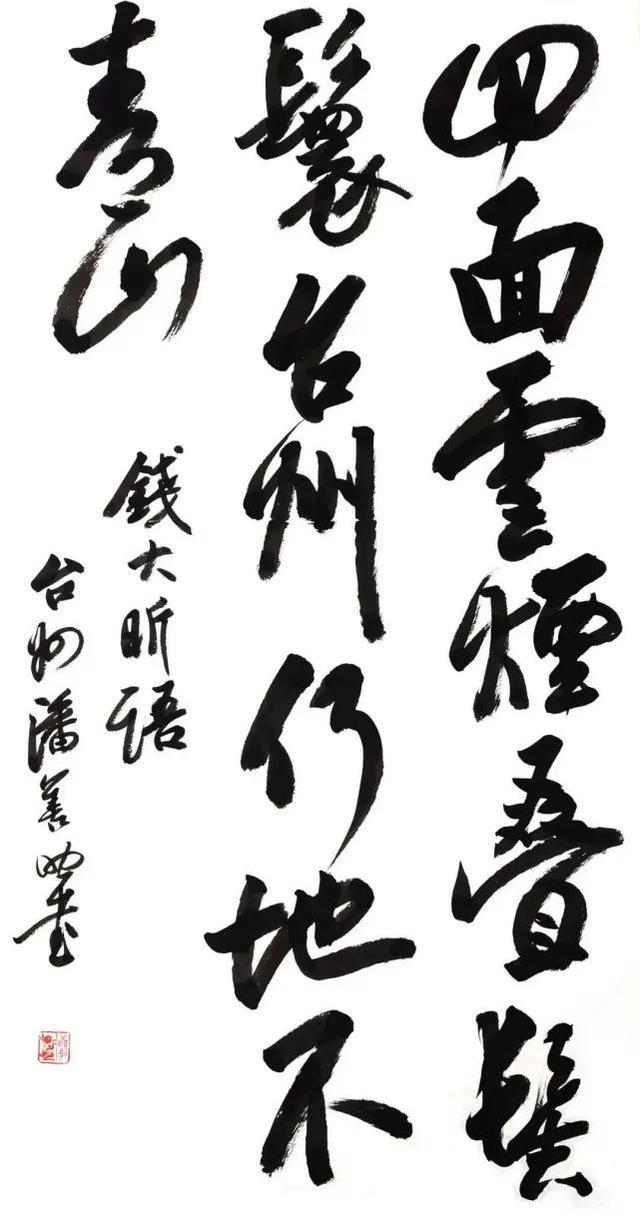 四面雲煙叠髻
鬟台州何地不
青山
錢大昕語
台州潘善助书